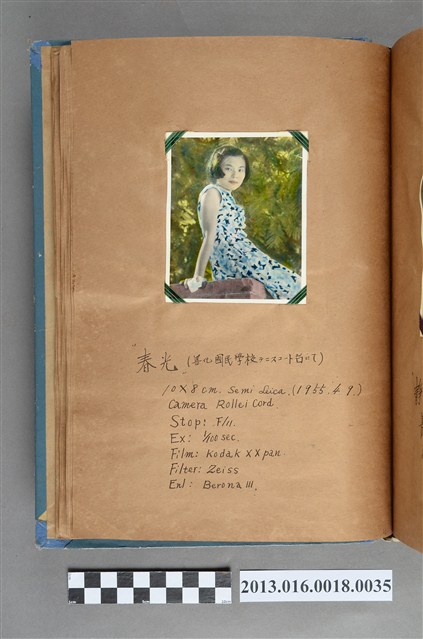 春光 (善化國民學校テニスコート台ニて)
10 X 8 cm. Semi Leica. (1955. 4. 9.)
Camera Rollei Cord.
Stop: F/11.
Ex: 1/100 sec.
Film: Kodak XX pan
Filter: Zeiss
Enl: Berona III.
2013.016.0018.0035